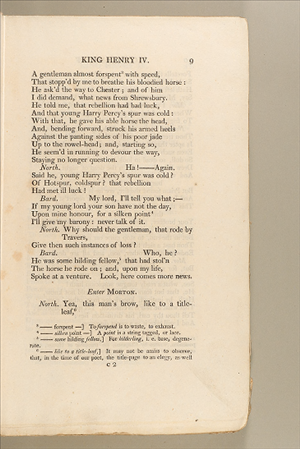 KING HENRY IV. 9
A gentleman almost forspent³ with speed,
That stopp'd by me to breathe his bloodied horse:
He ask'd the way to Chester; and of him
I did demand, what news from Shrewsbury.
He told me, that rebellion had bad luck,
And that young Harry Percy's spur was cold:
With that, he gave his able horse the head,
And, bending forward, struck his armed heels
Against the panting sides of his poor jade
Up to the rowel-head; and, starting so,
He seem'd in running to devour the way,
Staying no longer question.
North. Ha!——Again.
Said he, young Harry Percy's spur was cold?
Of Hotspur, coldspur? that rebellion
Had met ill luck!
Bard. My lord, I'll tell you what;—
If my young lord your son have not the day,
Upon mine honour, for a silken point⁴
I'll give my barony: never talk of it.
North. Why should the gentleman, that rode by
Travers,
Give then such instances of loss?
Bard. Who, he?
He was some hilding fellow,⁵ that had stol'n
The horse he rode on; and, upon my life,
Spoke at a venture. Look, here comes more news.
Enter MORTON.
North. Yea, this man's brow, like to a title-
leaf,⁶
³ —— forspent —] To forspend is to waste, to exhaust.
⁴ —— silken point —] A point is a string tagged, or lace.
⁵ —— some hilding fellow,] For hilderling, i. e. base, degene-
rate.
⁶ —— like to a title-leaf,] It may not be amiss to observe,
that, in the time of our poet, the title-page to an elegy, as well
C 2